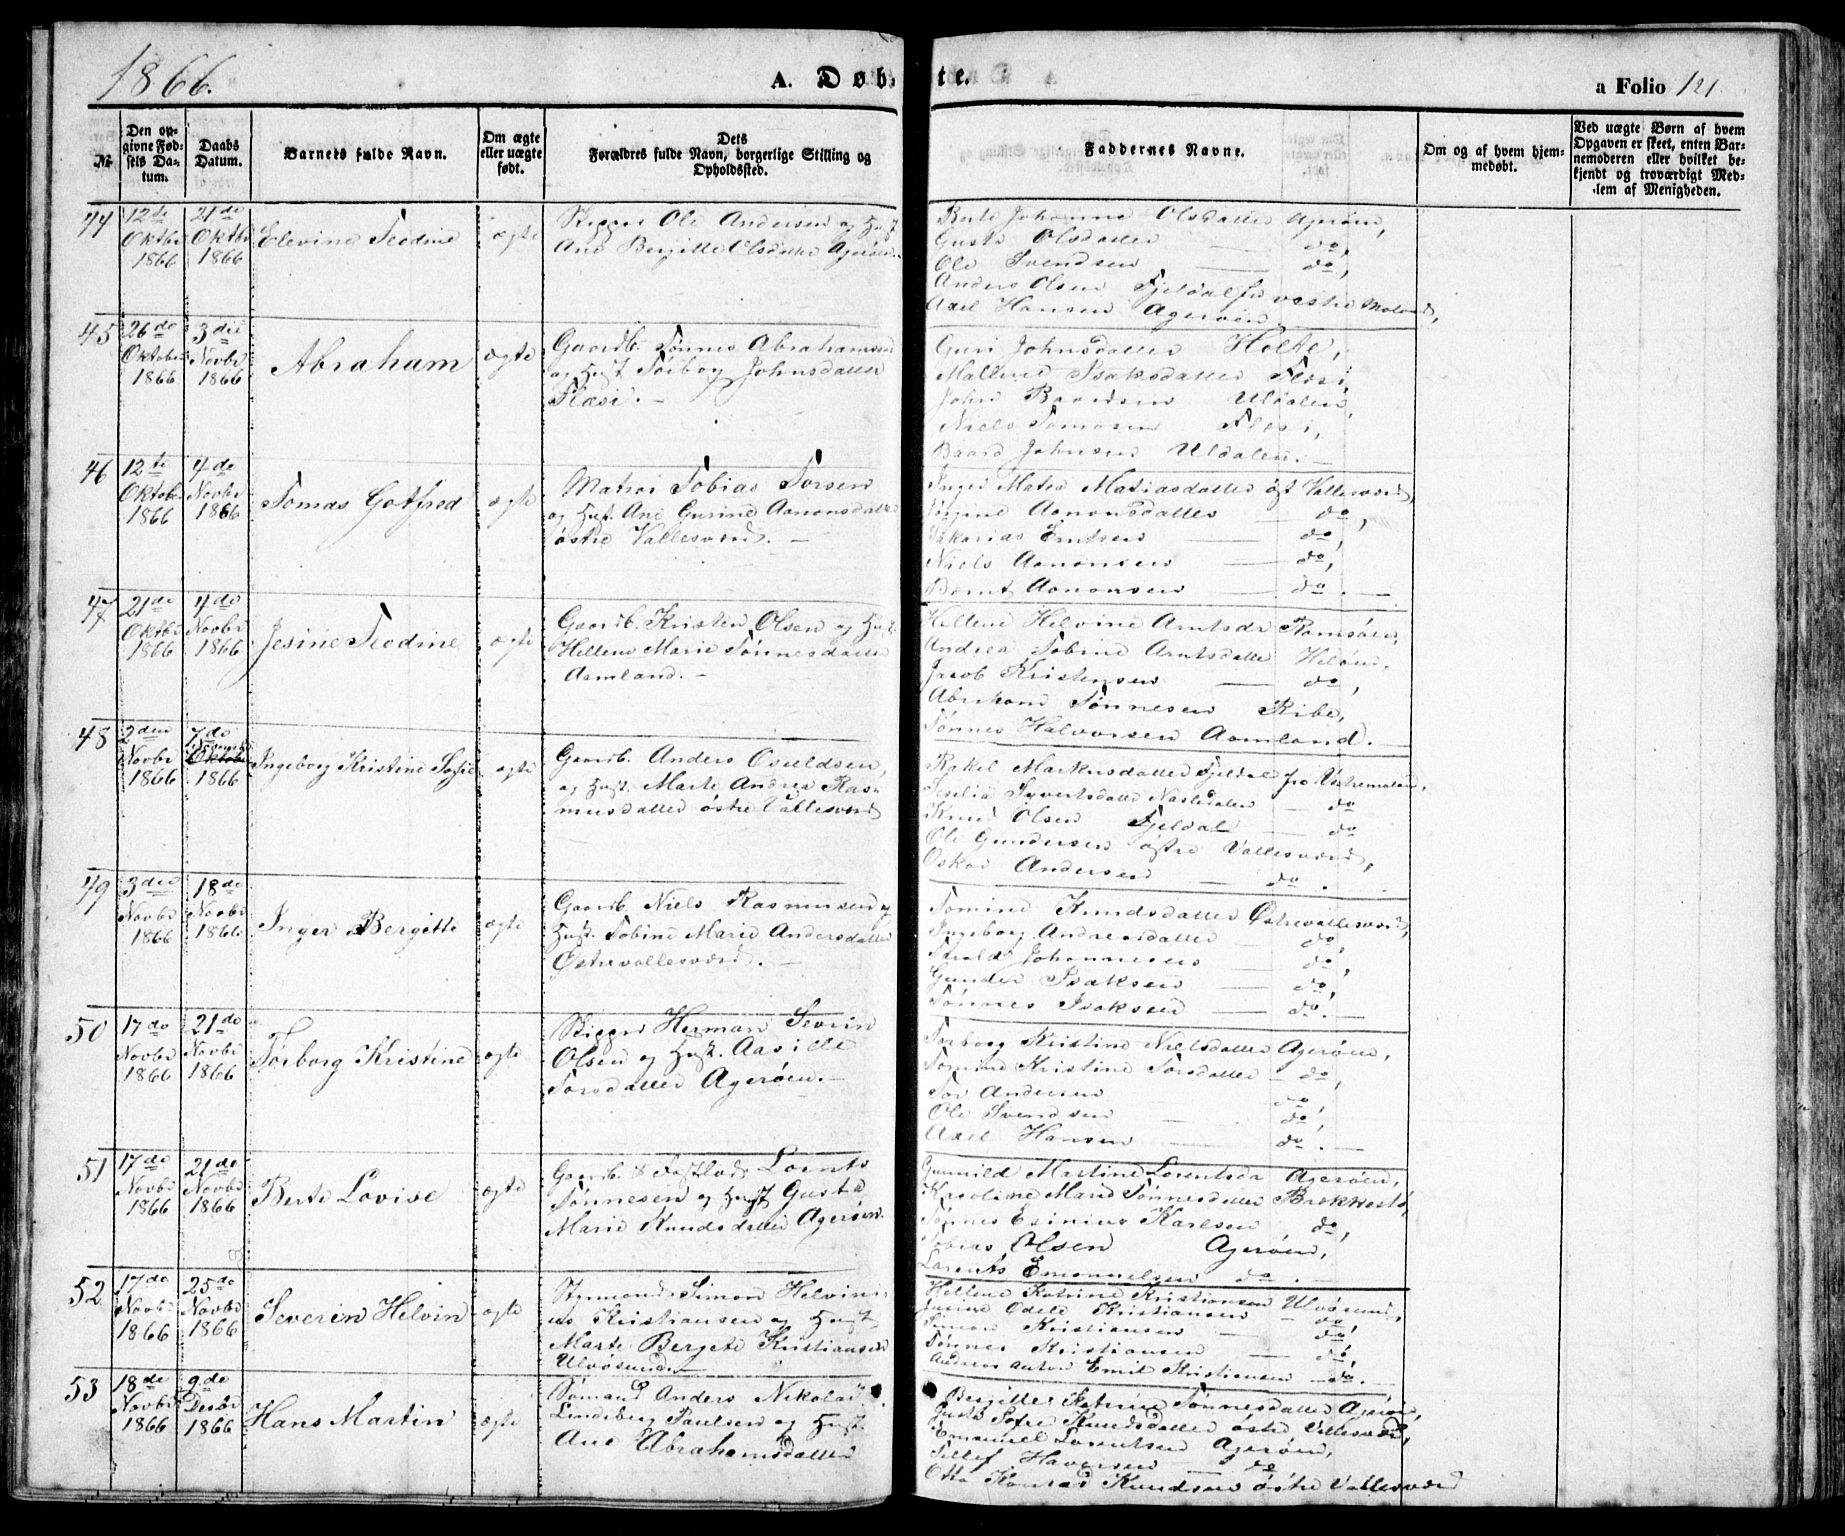 1866.
A. Døbte.
a Folio 121
№
Den opgivne Fødsels Datum.
Daabs Datum.
Barnets fulde Navn.
Om ægte eller uægte født.
Dets Forældres fulde Navn, borgerlige Stilling og Opholdssted.
Faddernes Navne.
Om og af hvem hjemmedøbt.
Ved uægte Børn af hvem Opgaven er skeet, enten Barnemoderen eller hvilket bekjendt og troværdigt Medlem af Menigheden.
44
12te Oktbr 1866
21de Oktbr 1866
Elevine Teodine
ægte
Skipper Ole Andersen og Hust
Ane Bergitte Olsdatter Agerøen.
Berte Johanne Olsdatter Agerøen,
Gusta Olsdatter — do,
Ole Svendsen — do,
Anders Olsen Fjeldal fra vestre Moland,
Axel Hansen Agerøen
45
26de Oktober 1866
3die Novbr 1866
Abraham
ægte
Gaardb. Tønnes Abrahamsen
og Hust Torborg Johnsdatter
Flæsi. —
Guri Johnsdatter Holte,
Mallene Isaksdatter Flæsi,
John Baardsen Uldalen,
Niels Tomasen Flæsi,
Baard Johnsen Uldalen. —
46
12te Oktob. 1866
4de Novbr 1866
Tomas Gotfred
ægte
Matros Tobias Torsen
og Hust. Ane Gurine Aanonsdatter
østre Vallesværd. —
Inger Matea Matiasdatter øst Vallesværd,
Aanonsdatter — do,
Sakarias Erntsen — do,
Niels Aanonsen — do,
Bernt Aanonsen do. —
47
21de Oktbr 1866
4de Novbr 1866
Jesine Teodine
ægte
Gaardb. Kristen Olsen og Hust.
Hellene Marie Tønnesdatter
Aamland. —
Hellene Helvine Arntsdr Ramsøen,
Andrea Tobine Arntsdatter Heløen,
Jacob Kristensen — do,
Abraham Tønnesen Ribe,
Tønnes Halvorsen Aamland. —
48
2den Novbr 1866
7de Oktobr 1866
Ingeborg Kristine Sofie
ægte
Gaardb. Anders Osuldsen,
og Hust. Marte Andrea Rasmusdatter østre Vallesværd
Rakel Markusdatter Fjeldal fra Vestremoland,
Syvertsdatter — do
Knud Olsen Fjeldal — do
Ole Gundersen østre Vallesværd,
Oskar Andersen — do.
49
3die Novbr 1866
18de Novbr 1866
Inger Bergitte
ægte
Gaardb. Niels Rasmussen og
Hust. Tobine Marie Andersdatter
Østrevallesværd. —
Tomine Knudsdatter Østrevallesværd,
Ingeborg Andreasdatter — do,
Johannesen — do,
Gunder Isaksen — do,
Tønnes Isaksen — do. —
50
17de Novbr 1866
21de Novbr 1866
Torborg Kristine
ægte
Skipper Herman Severin
Olsen og Hust. Aasille
Torsdatter Agerøen. —
Torborg Kristine Nielsdatter Agerøen,
Tomine Kristine Torsdatter — do,
Tor Andersen do,
Ole Svendsen — do,
Axel Hansen — do. —
51
17de Novbr 1866
21de Novbr 1866
Berte Lovise
ægte
Gaardb. & Fastlods Lorents
Tønnesen og Hust Gusta
Marie Knudsdatter Agerøen.
Gunnild Martine Lorentsdr Agerøen,
Karoline Marie Tønnesdatter Brekkestø,
Tønnes Esinius Karlsen do,
Tobias Olsen Agerøen,
Lorents Emanuelsen do. —
52
17de Novbr 1866
25de Novbr 1866
Severin Helvin
ægte
Styrmand Simon Helvinius Kristiansen og Hust
Marte Bergete Kristiansen
Ulvøsund. —
Hellene Katrine Kristiansen Ulvøsund,
Odele Kristiansen — do,
Simon Kristiansen — do,
Tønnes Kristiansen — do,
Andreas Anton Emil Kristiansen — do. —
53
18de Novbr 1866
9de Decbr 1866
Hans Martin
ægte
Sømand Anders Nikolai
Lindeberg Paulsen og Hust
Ane Abrahamsdatter
Bergitte Katrine Tønnesdatter Agerøen,
Gusta Sofie Knudsdatter østre Vallesværd,
Emanuel Lorentsen Agerøen,
Tellef Haversen — do
Otto Konrad Knudsen østre Vallesværd